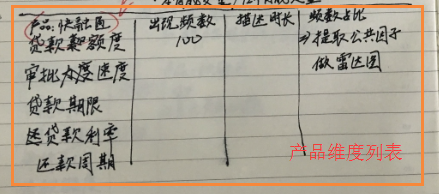 产品:快融通 出现频数 描述时长 频数占比
贷款额度 100 ⇒提取公共因子
审批力度速度 做雷达图
贷款期限
还贷款利率
还款周期
产品维度列表